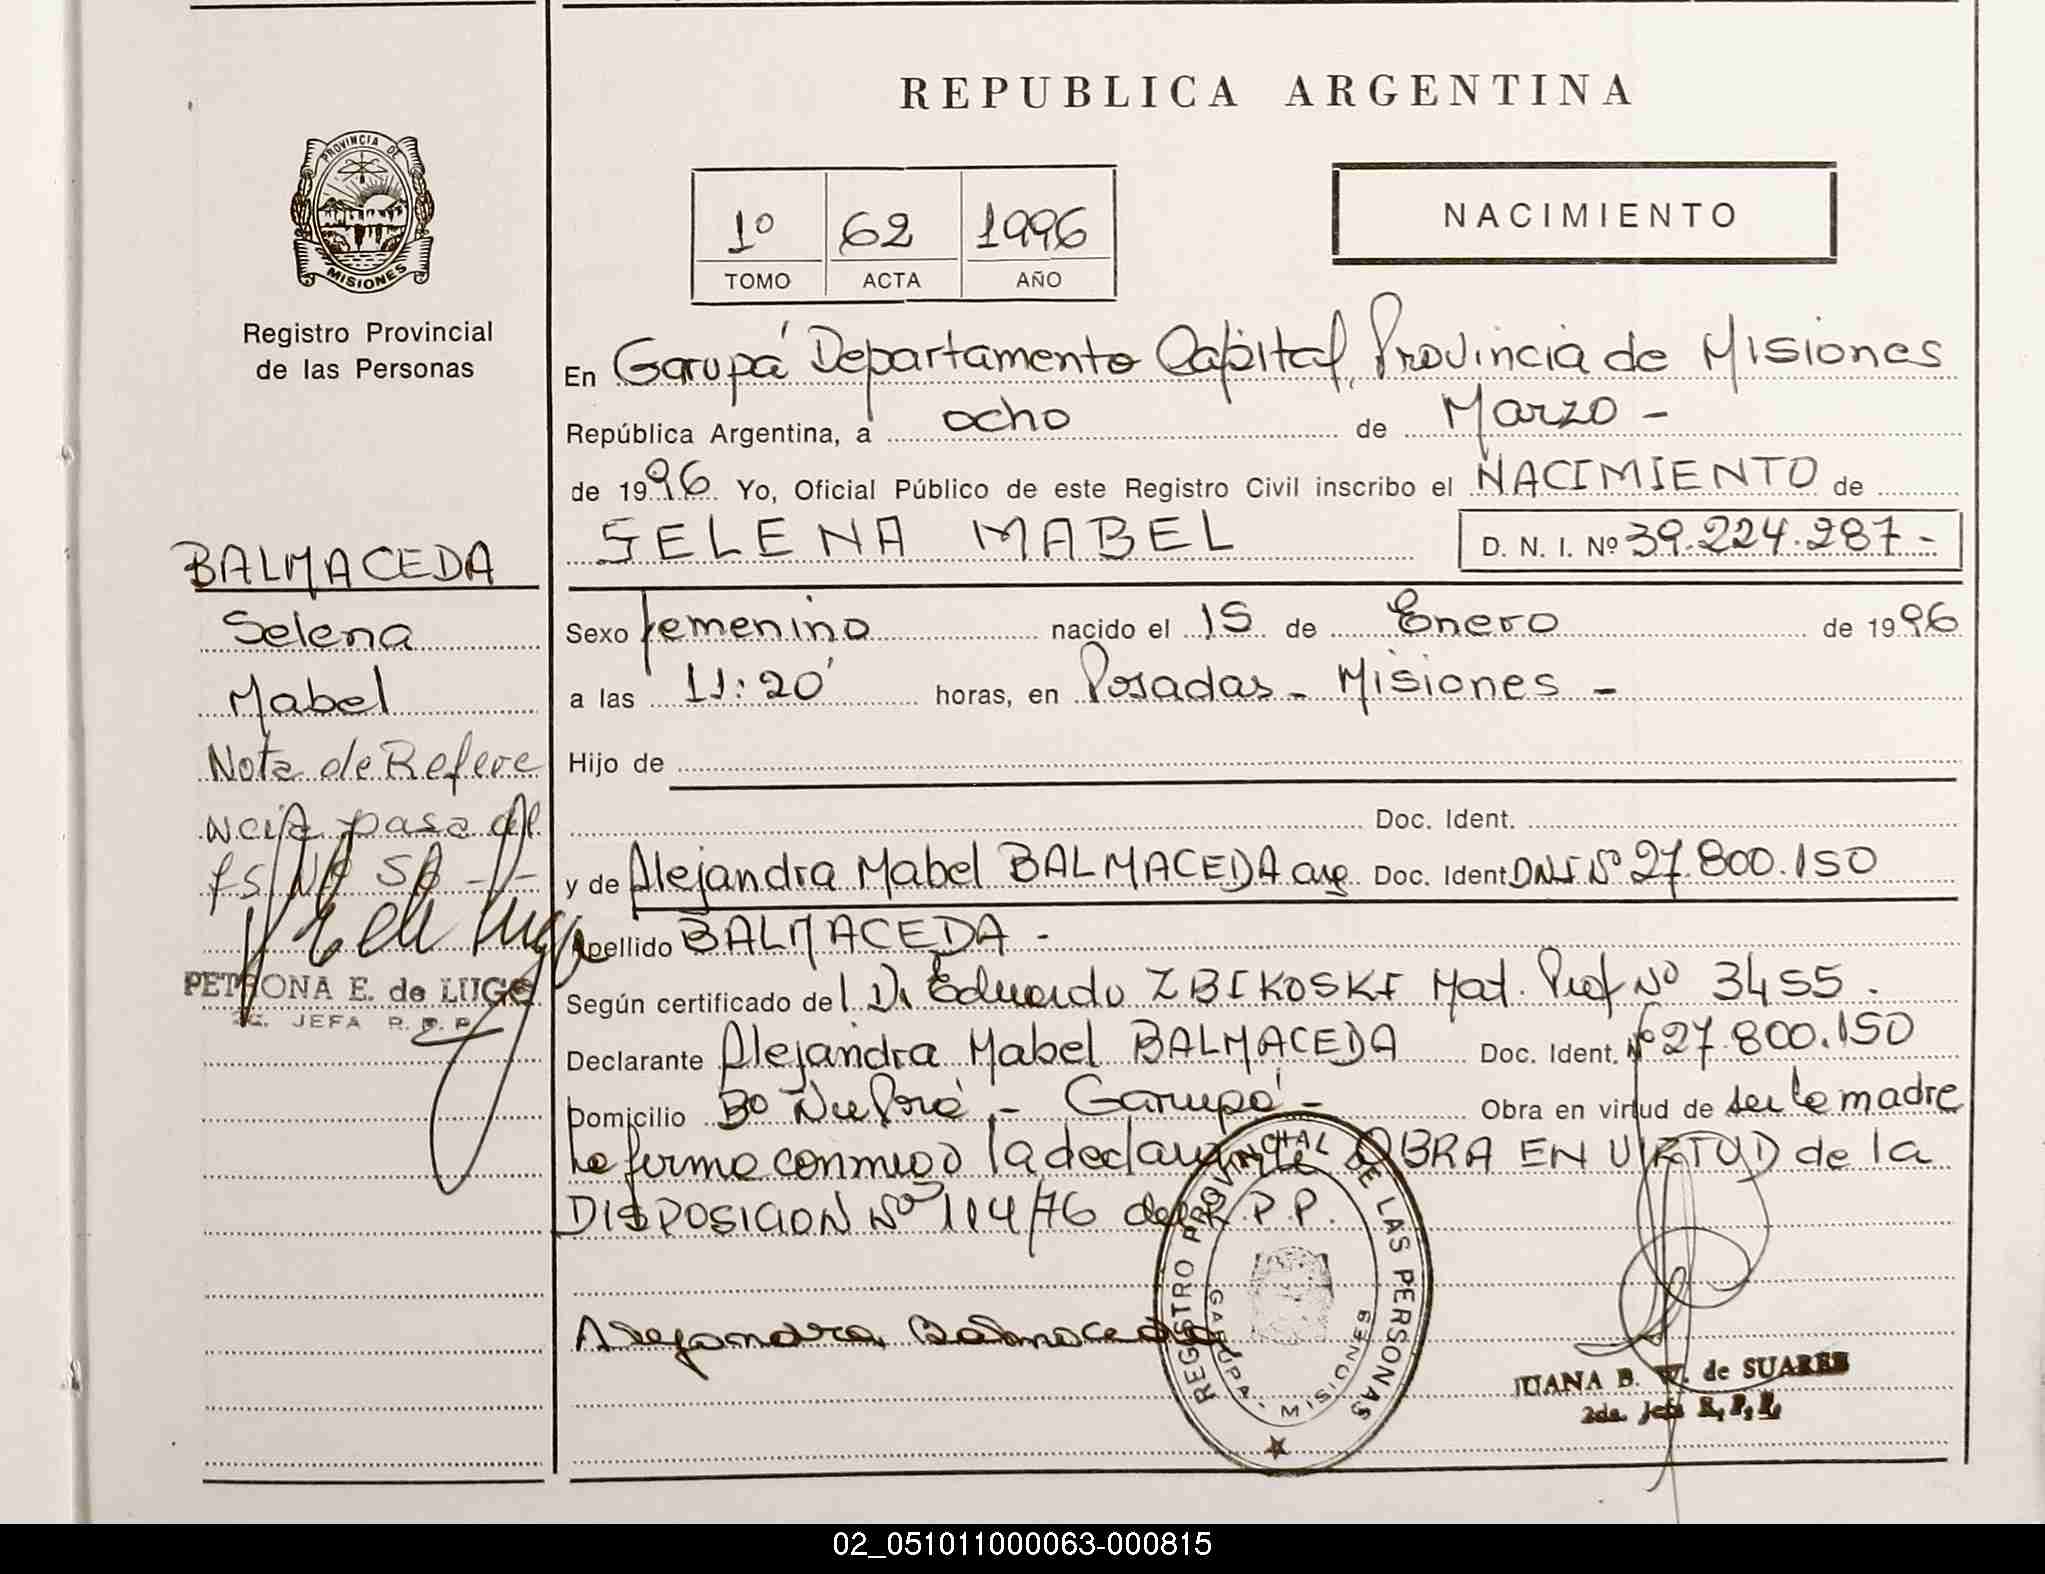 REPUBLICA ARGENTINA
PROVINCIA DE
MISIONES
Registro Provincial
de las Personas
1º 62 1996
TOMO ACTA AÑO
NACIMIENTO
En Garupá Departamento Capital, Provincia de Misiones
República Argentina, a ocho de Marzo -
de 1996 Yo, Oficial Público de este Registro Civil inscribo el NACIMIENTO de
SELENA MABEL D. N. I. Nº 39.224.287-
BALMACEDA
Selena
Mabel
Nota de Refere
ncia pasa al
PETRONA E. de LUGO
JEFA R. P. P.
Sexo femenino nacido el 15 de Enero de 1996
a las 11:20' horas, en Posadas - Misiones -
Hijo de
Doc. Ident.
y de Alejandra Mabel BALMACEDA arg. Doc. Ident DNI Nº 27.800.150
Apellido BALMACEDA -
Según certificado del Dr Eduardo ZBIKOSKI Mat. Prof Nº 3455.
Declarante Alejandra Mabel BALMACEDA Doc. Ident. Nº 27.800.150
Domicilio Bº Ñu Porá - Garupá - Obra en virtud de ser la madre
La firma conmigo la declarante OBRA EN VIRTUD de la
DISPOSICION Nº 114/76 del R.P.P.
Alejandra Balmaceda
REGISTRO PROVINCIAL DE LAS PERSONAS
GARUPA - MISIONES
JUANA B. W. de SUAREZ
2da. Jefa R. P. P.
02_051011000063-000815